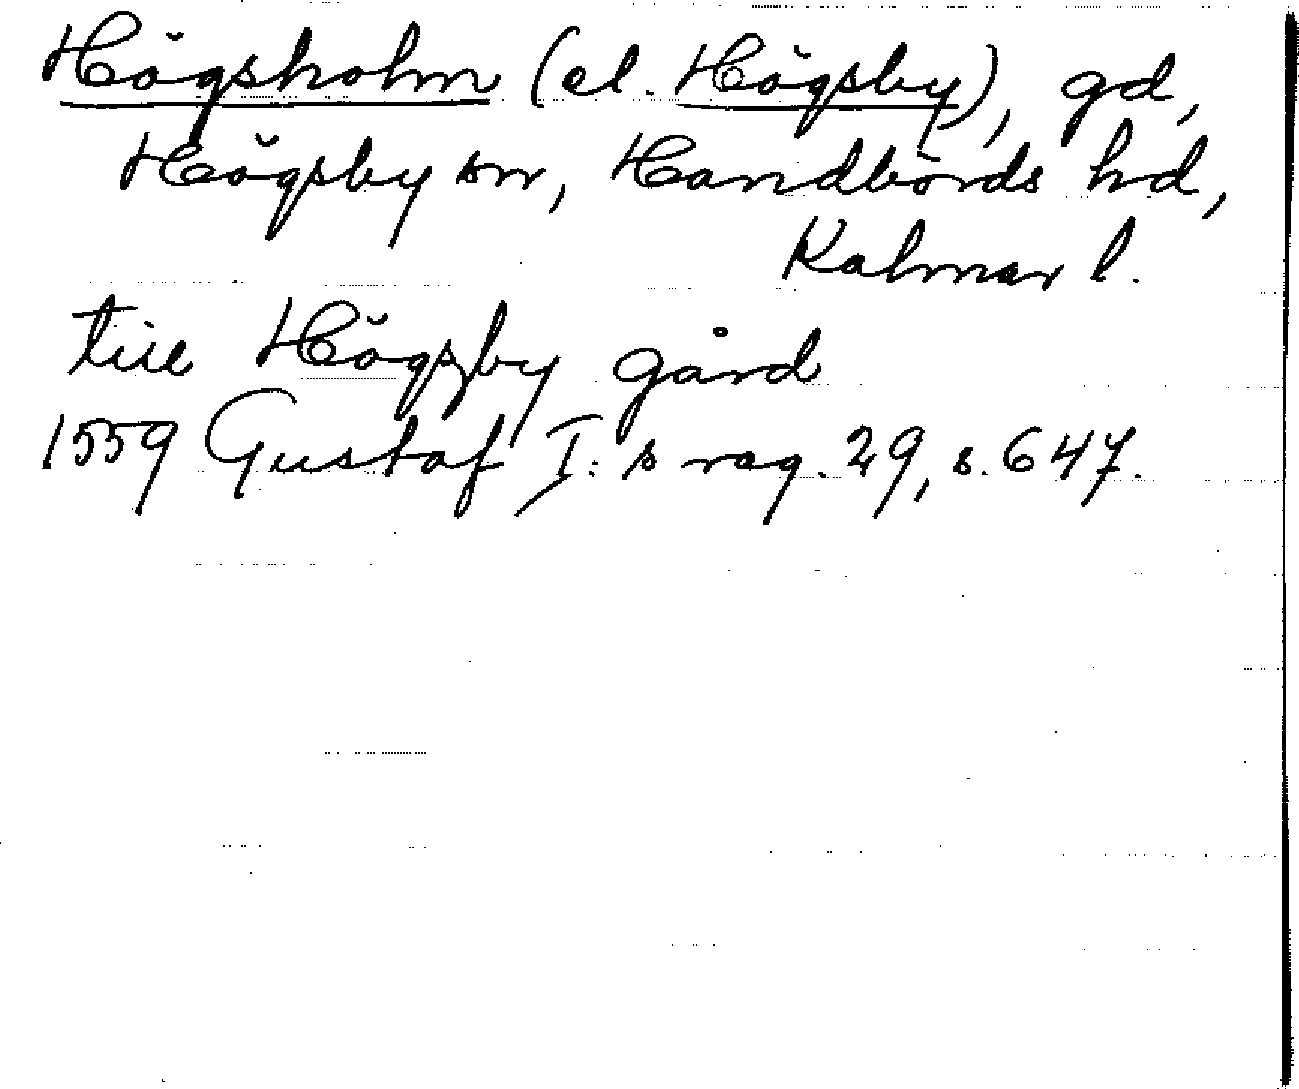 Högsholm (el. Högsby), gd,
Högsby sn, Handbörds hd,
Kalmar l.
till Högzby gård
1559 Gustaf I:s reg. 29, s. 647.